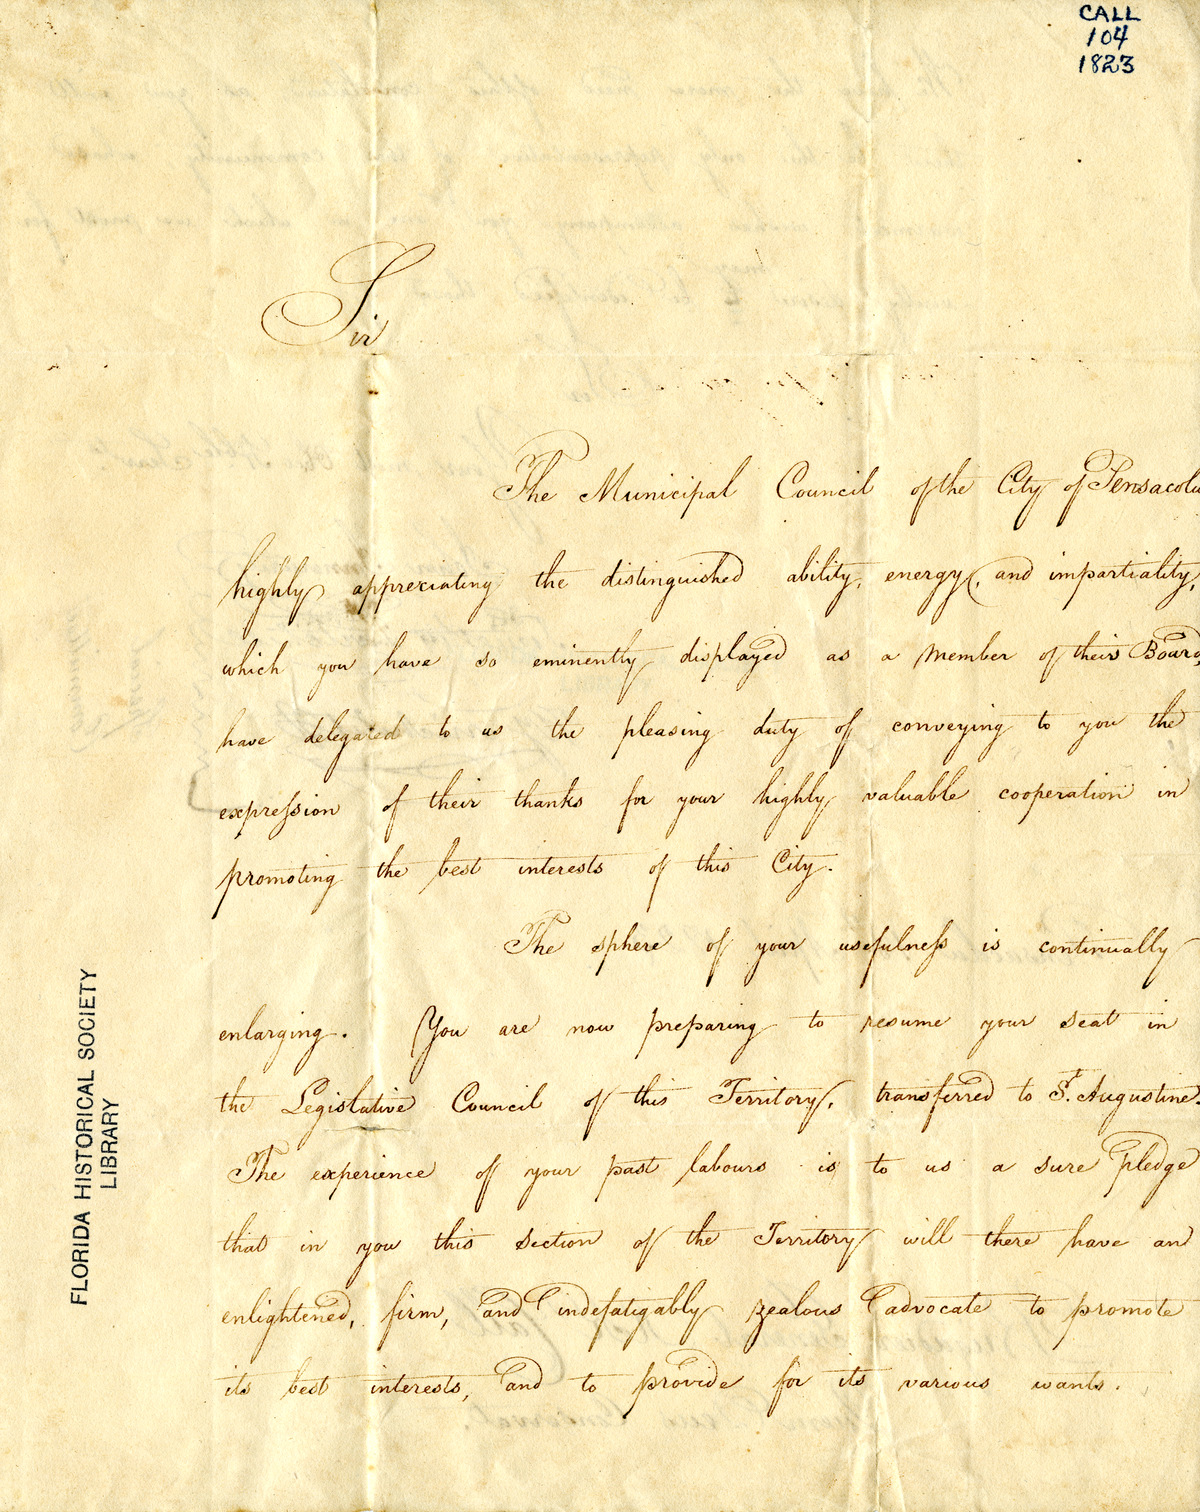 CALL
104
1823
Sir
The Municipal Council of the City of Pensacola
highly appreciating the distinguished ability, energy, and impartiality,
which you have so eminently displayed as a Member of their Board,
have delegated to us the pleasing duty of conveying to you the
expression of their thanks for your highly valuable cooperation in
promoting the best interests of this City.
The sphere of your usefulness is continually
enlarging. You are now preparing to resume your seat in
the Legislative Council of this Territory, transferred to St. Augustine.
The experience of your past labours is to us a sure pledge
that in you this section of the Territory will there have an
enlightened, firm, and indefatigably zealous advocate to promote
its best interests, and to provide for its various wants.
FLORIDA HISTORICAL SOCIETY
LIBRARY